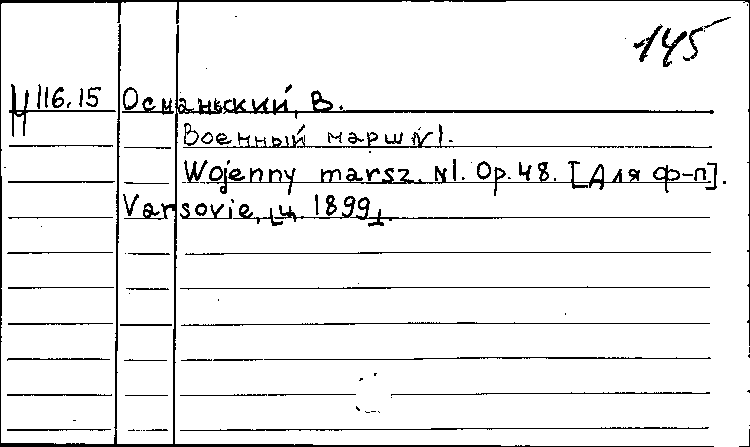 145
Ц 116.15 Османьский, В.
Военный марш №1.
Wojenny marsz. №1. Op. 48. [Для ф-п].
Varsovie, [ц. 1899].